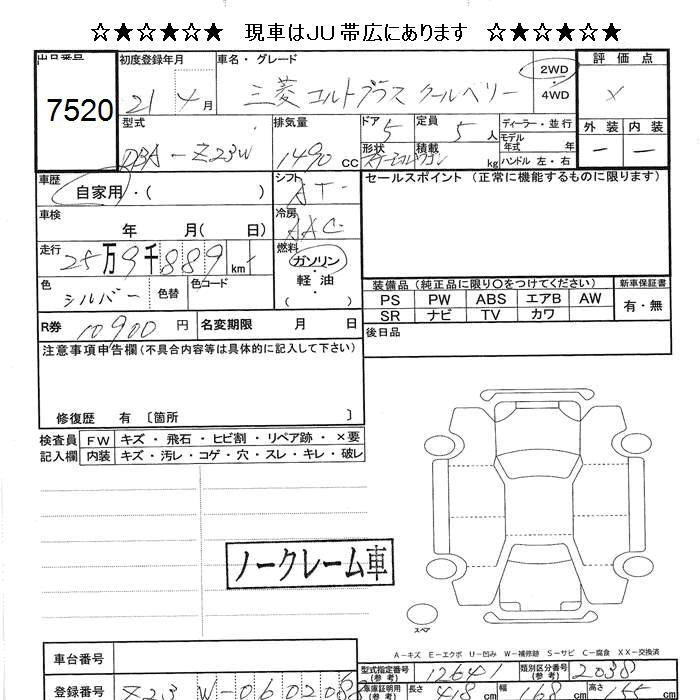 ☆★☆★☆★ 現車はJU帯広にあります ☆★☆★☆★
出品番号 初度登録年月 車名・グレード 2WD 評価点
7520 21 4月 三菱 コルトプラス クールベリー 4WD
型式 排気量 ドア 定員 ディーラー・並行 外装 内装
DBA-Z23W 1490cc 5 5人 モデル年式 年 ー ー
形状 積載 kg ハンドル 左・右
車歴 シフト セールスポイント (正常に機能するものに限ります)
自家用・( ) AT
車検 冷房
年 月( 日) AAC
走行 燃料
25万9千889km ガソリン・軽油
色 色替 色コード 装備品 (純正品に限り○をつけてください) 新車保証書
シルバー PS PW ABS エアB AW 有・無
SR ナビ TV カワ
R券 10900円 名変期限 月 日 後日品
注意事項申告欄 (不具合内容等は具体的に記入して下さい)
修復歴 有 〔箇所 〕
検査員 FW キズ・飛石・ヒビ割・リペア跡・×要
記入欄 内装 キズ・汚レ・コゲ・穴・スレ・キレ・破レ
ノークレーム車
スペア
A-キズ E-エクボ U-凹み W-補修跡 S-サビ C-腐食 XX-交換済
車台番号 型式指定番号(参考) 12641 類別区分番号(参考) 2038
登録番号 Z23W-060206 車庫証明用(参考) 長さ 418cm 幅 168cm 高さ 155cm